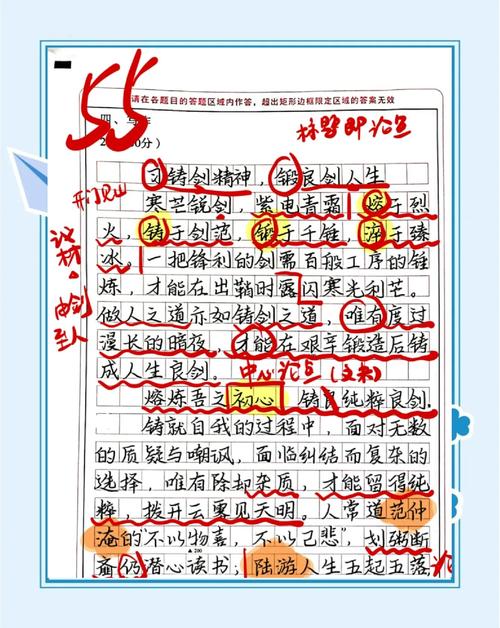 55
请在各题目的答题区域内作答,超出矩形边框限定区域的答案无效
四、写作
标题即论点
习铸剑精神,锻良剑人生
开门见山
寒芒锐剑,紫电青霜。熔于烈
火,铸于剑范,锻于千锤,淬于臻
议析
冰。一把锋利的剑需百般工序的锤
炼,才能在出鞘时露闪寒光利芒。
由剑到人
做人之道亦如铸剑之道,唯有度过
漫长的暗夜,才能在艰辛锻造后铸
成人生良剑。
中心论点
熔炼吾之初心,铸良纯粹良剑。
铸就自我的过程中,面对无数
的质疑与嘲讽,面临纠结而复杂的
选择,唯有除却杂质,才能留得纯
粹,拨开云雾见天明。人常道范仲
淹的“不以物喜,不以己悲”,划粥断
▲200
齑仍潜心读书;陆游人生五起五落,
论